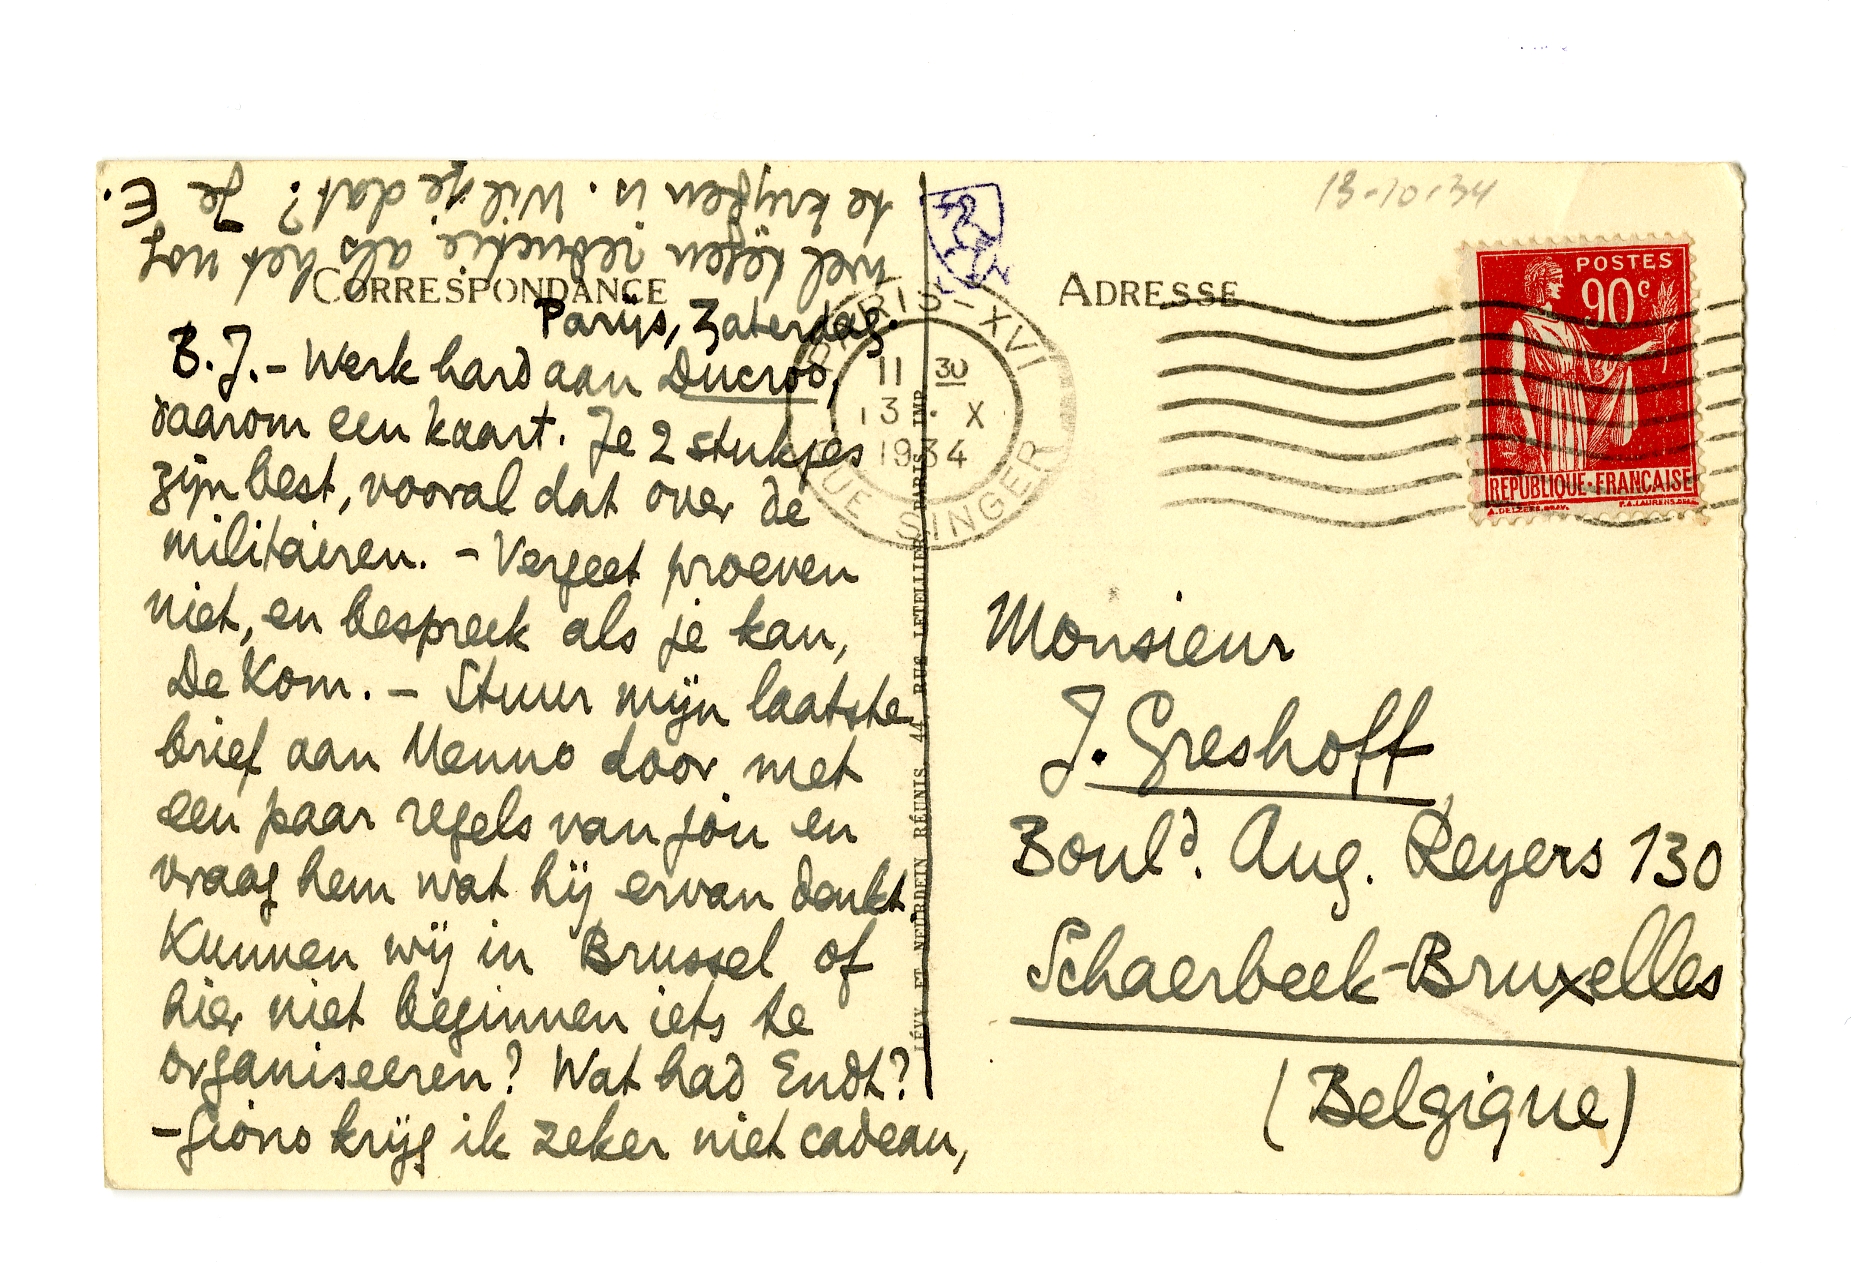 CORRESPONDANCE
Parijs, Zaterdag.
B.J. - Werk hard aan Ducroo,
daarom een kaart. Je 2 stukjes
zijn best, vooral dat over de
militairen. - Vergeet proeven
niet, en bespreek als je kan,
De Kom. - Stuur mijn laatste
brief aan Menno door met
een paar regels van jou en
vraag hem wat hij ervan denkt.
Kunnen wij in Brussel of
hier niet beginnen iets te
organiseeren? Wat had Endt?
- Giono krijg ik zeker niet cadeau,
wel tegen reductie, als het nog
te krijgen is. Wil je dat? Je
E.
LÉVY ET NEURDEIN RÉUNIS, 44, RUE LETELLIER, PARIS IMP.
13-10-34
ADRESSE
PARIS-XVI
11 30
13 . X
1934
RUE SINGER
POSTES
90c
REPUBLIQUE·FRANÇAISE
Monsieur
J. Greshoff
Bould. Aug. Reyers 130
Schaerbeek-Bruxelles
(Belgique)